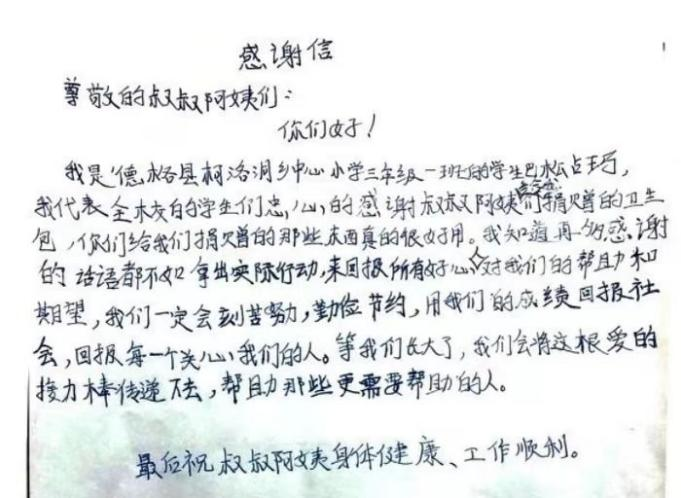 感谢信
尊敬的叔叔阿姨们：
你们好！
我是德格县柯洛洞乡中心小学三年级一班的学生巴松占巧，
我代表全校的学生们忠心的感谢叔叔阿姨们捐赠的卫生
包，你们给我们捐赠的那些东西真的很好用。我知道再多感谢
的话语都不如拿出实际行动，来回报所有好心人对我们的帮助和
期望，我们一定会刻苦努力，勤俭节约，用我们的成绩回报社
会，回报每一个关心我们的人。等我们长大了，我们会将这根爱的
接力棒传递下去，帮助那些更需要帮助的人。
最后祝叔叔阿姨身体健康、工作顺利。